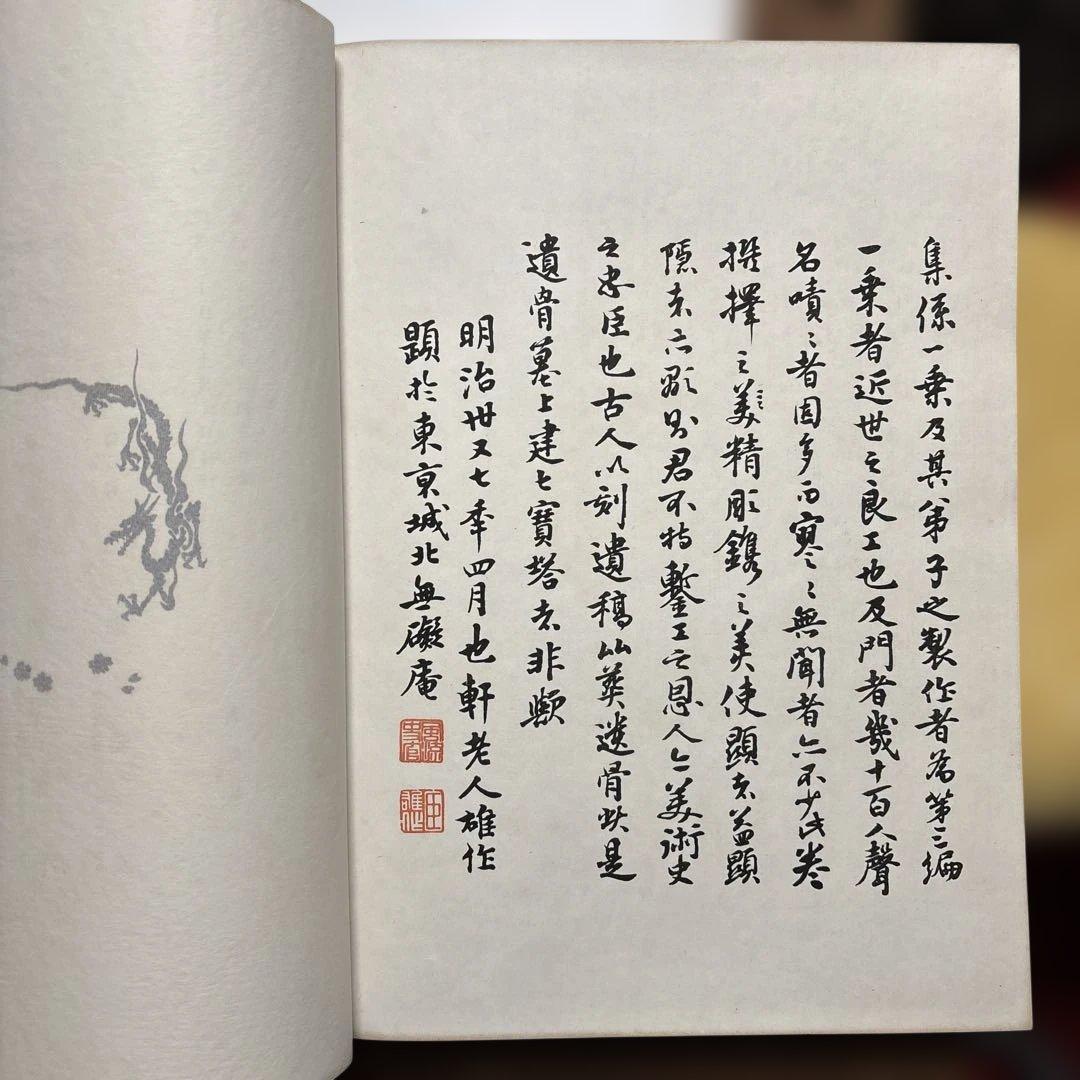 集係一乗及其弟子之製作者為第三編
一乗者近世之良工也及門者幾十百人聲
名嘖〻者固多而寥〻無聞者亦不少此巻
撰擇之美精彫鐫之美使顕者益顕
隠者亦顕則君不特鏨工之恩人亦美術史
之忠臣也古人以刻遺稿比葬遺骨此是
遺骨墓上建七寶塔者非歟
明治卅又七年四月也軒老人雄作
題於東京城北無礙庵